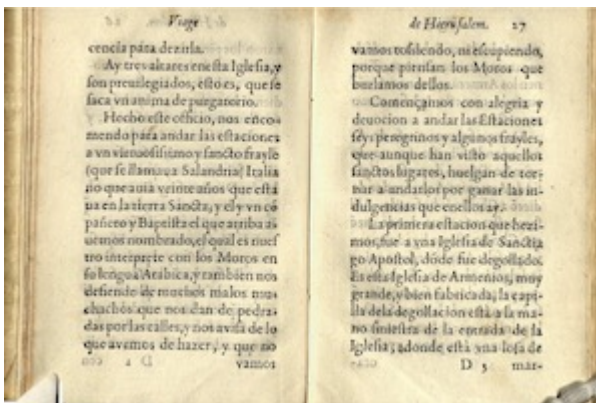 Viage
cencia para dezirla.
Ay tres altares en esta Iglesia, y
son preuilegiados, esto es, que se
saca vn anima de purgatorio.
Hecho este oficio, nos enco-
mendo para andar las estaciones
a vn virtuosissimo y sancto frayle
(que se llamaua Salandria) Italia
no que auia veinte años que esta
ua en la tierra Sancta, y el y vn cõ
pañero y Baptista el que arriba a-
uemos nombrado, el qual es nues
tro interprete con los Moros en
so lengoa Arabica, y tambien nos
defiende de muchos malos mu-
chachos que nos dan de pedra-
das por las calles, y nos auisa de lo
que avemos de hazer, y que no
vamos
de Hierusalem. 27
vamos tosiendo, ni escupiendo,
porque piensan los Moros que
burlamos dellos.
Començamos con alegria y
deuocion a andar las Estaciones
seys peregrinos y algunos frayles,
que aunque han visto aquellos
sanctos lugares, huelgan de tor-
nar a andarlos por ganar las in-
dulgencias que en ellos ay.
La primera estacion que hezi-
mos, fue a vna Iglesia de Sanctia
go Apostol, dõde fue degollado.
Es esta Iglesia de Armenios, muy
grande, y bien fabricada, la capi-
lla dela degollacion està a la ma-
no siniestra de la entrada de la
Iglesia, adonde està vna losa de
D 3 mar-